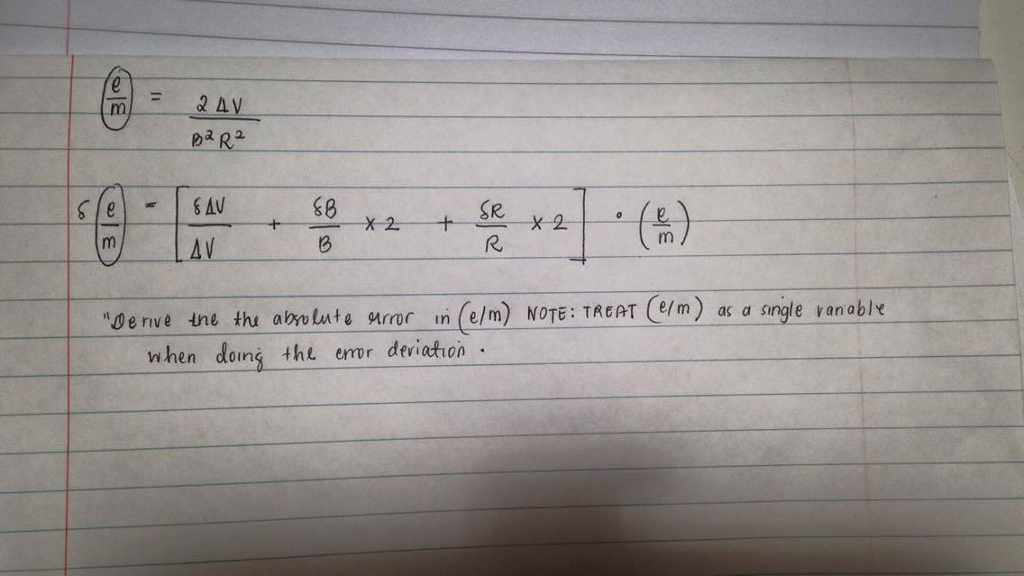 e/m = 2 ΔV / B² R²
δ(e/m) = [δΔV/ΔV + δB/B × 2 + δR/R × 2] · (e/m)
"Derive the the absolute error in (e/m) NOTE: TREAT (e/m) as a single variable
when doing the error deviation.